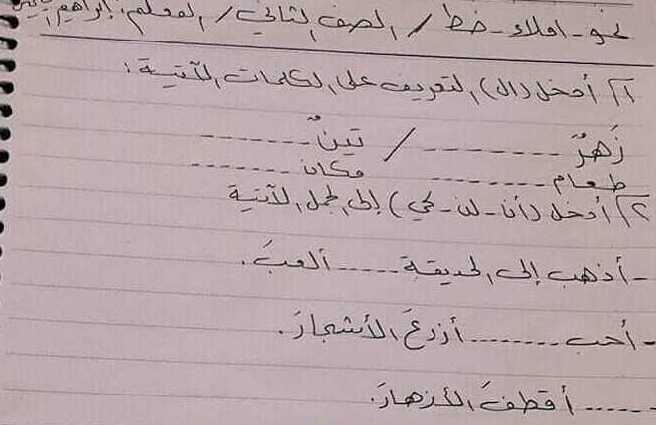 نحو - املاء - خط / الصف الثاني / المعلم: ابراهيم
١) أدخل (ال) التعريف على الكلمات الآتية:
زَهرٌ --------- / تينٌ ---------
طعام --------- مكان ---------
٢) أدخل (أن - لن - كي) إلى الجمل الآتية
- أذهب إلى الحديقة ..... ألعبَ.
- أحب ......... أزرعَ الأشجارَ.
...... أقطفَ الأزهارَ.